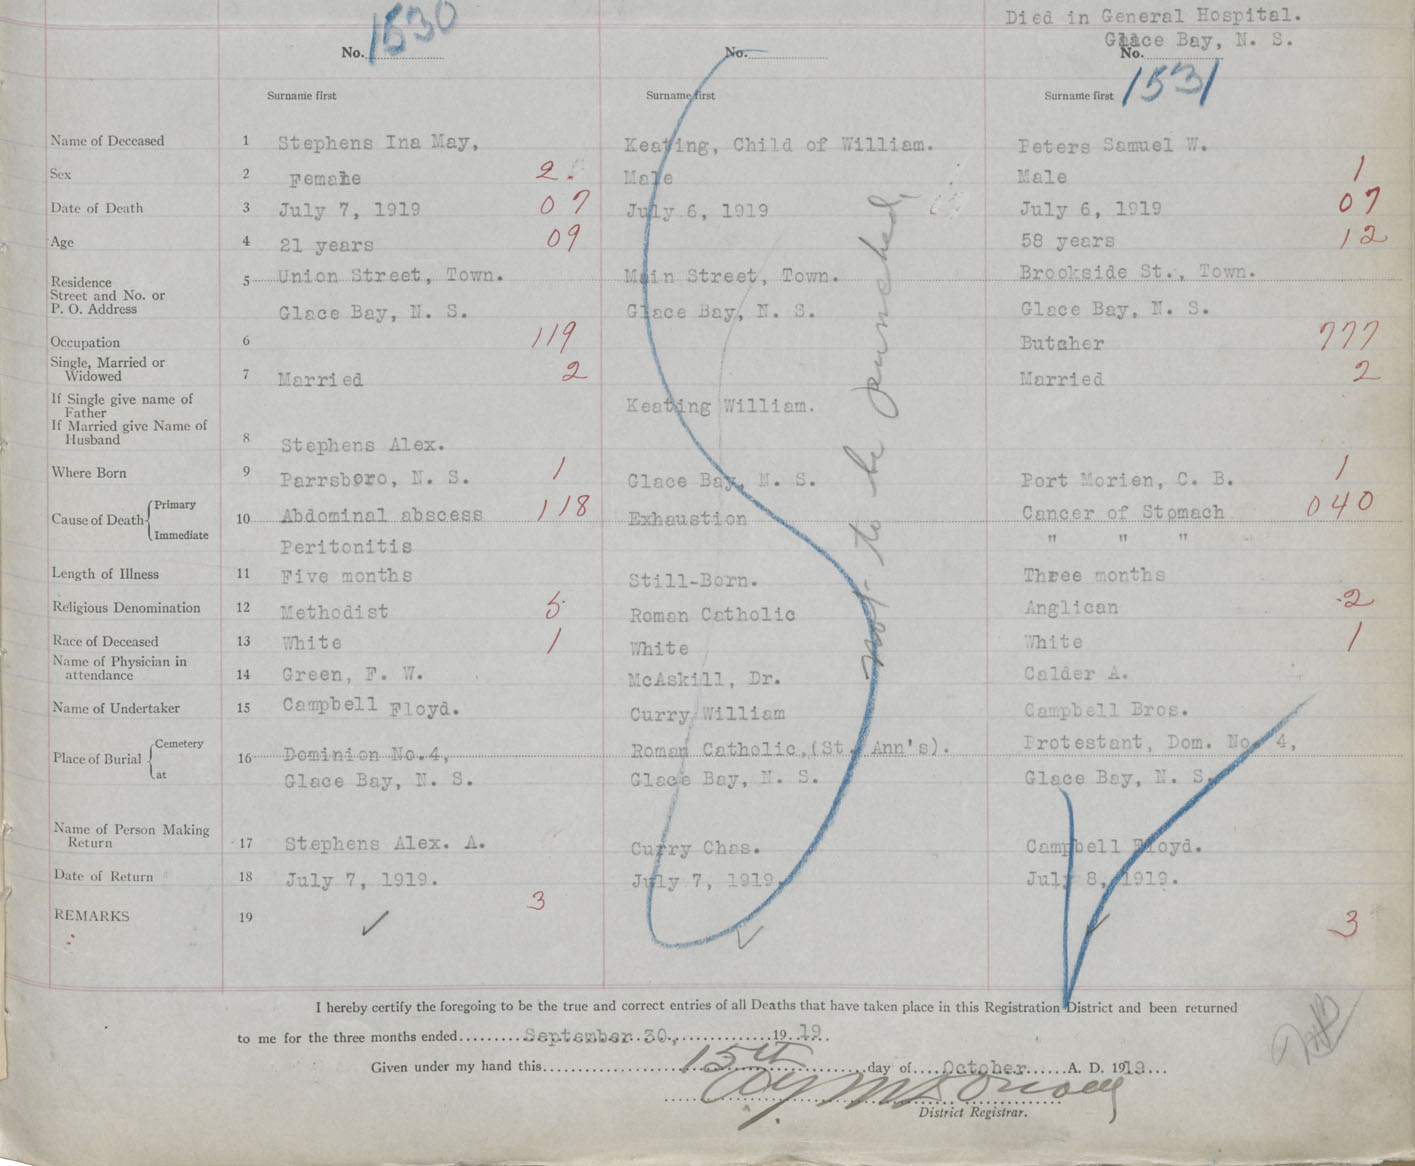 Died in General Hospital.
Glace Bay, N. S.
No. 1530 No. No. 1531
Surname first Surname first Surname first
Name of Deceased 1 Stephens Ina May, Keating, Child of William. Peters Samuel W.
Sex 2 Female 2. Male Male 1
Date of Death 3 July 7, 1919 07 July 6, 1919 July 6, 1919 07
Age 4 21 years 09 58 years 12
Residence Street and No. or P. O. Address 5 Union Street, Town. Main Street, Town. Brookside St., Town.
Glace Bay, N. S. Glace Bay, N. S. Glace Bay, N. S.
Occupation 6 119 Butcher 777
Single, Married or Widowed 7 Married 2 Married 2
If Single give name of Father Keating William.
If Married give Name of Husband 8 Stephens Alex.
Where Born 9 Parrsboro, N. S. 1 Glace Bay, N. S. Port Morien, C. B. 1
Cause of Death { Primary 10 Abdominal abscess 118 Exhaustion Cancer of Stomach 040
Immediate Peritonitis " " "
Length of Illness 11 Five months Still-Born. Three months
Religious Denomination 12 Methodist 5 Roman Catholic Anglican 2
Race of Deceased 13 White 1 White White 1
Name of Physician in attendance 14 Green, F. W. McAskill, Dr. Calder A.
Name of Undertaker 15 Campbell Floyd. Curry William Campbell Bros.
Place of Burial { Cemetery 16 Dominion No.4, Roman Catholic,(St. Ann's). Protestant, Dom. No. 4,
at Glace Bay, N. S. Glace Bay, N. S. Glace Bay, N. S.
Name of Person Making Return 17 Stephens Alex. A. Curry Chas. Campbell Floyd.
Date of Return 18 July 7, 1919. July 7, 1919. July 8, 1919.
REMARKS 19 3 3
Not to be punched.
I hereby certify the foregoing to be the true and correct entries of all Deaths that have taken place in this Registration District and been returned
to me for the three months ended September 30, 1919.
Given under my hand this 15th day of October A. D. 1919
District Registrar.